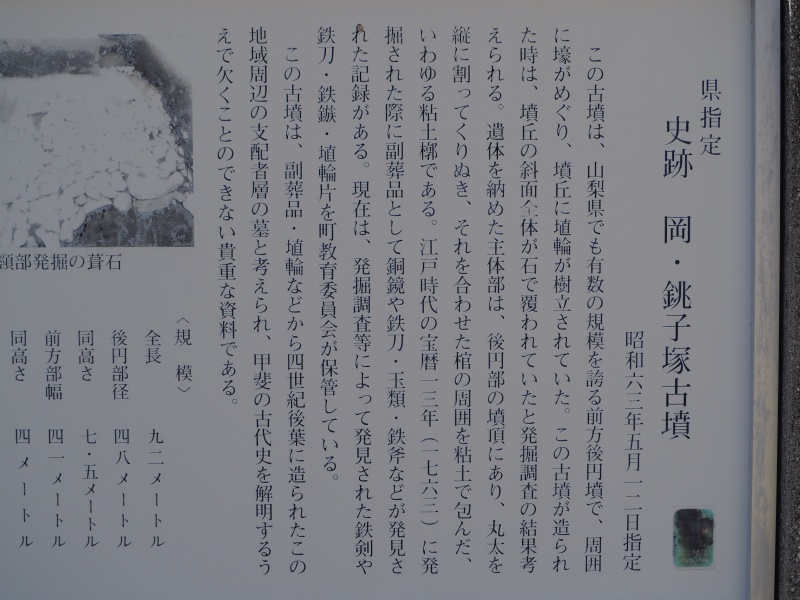 県指定
史跡　岡・銚子塚古墳
昭和六三年五月一二日指定
この古墳は、山梨県でも有数の規模を誇る前方後円墳で、周囲
に壕がめぐり、墳丘に埴輪が樹立されていた。この古墳が造られ
た時は、墳丘の斜面全体が石で覆われていたと発掘調査の結果考
えられる。遺体を納めた主体部は、後円部の墳頂にあり、丸太を
縦に割ってくりぬき、それを合わせた棺の周囲を粘土で包んだ、
いわゆる粘土槨である。江戸時代の宝暦一三年（一七六三）に発
掘された際に副葬品として銅鏡や鉄刀・玉類・鉄斧などが発見さ
れた記録がある。現在は、発掘調査等によって発見された鉄剣や
鉄刀・鉄鏃・埴輪片を町教育委員会が保管している。
この古墳は、副葬品・埴輪などから四世紀後葉に造られたこの
地域周辺の支配者層の墓と考えられ、甲斐の古代史を解明するう
えで欠くことのできない貴重な資料である。
頸部発掘の葺石
〈規　模〉
全長　九二メートル
後円部径　四八メートル
同高さ　七・五メートル
前方部幅　四一メートル
同高さ　四メートル